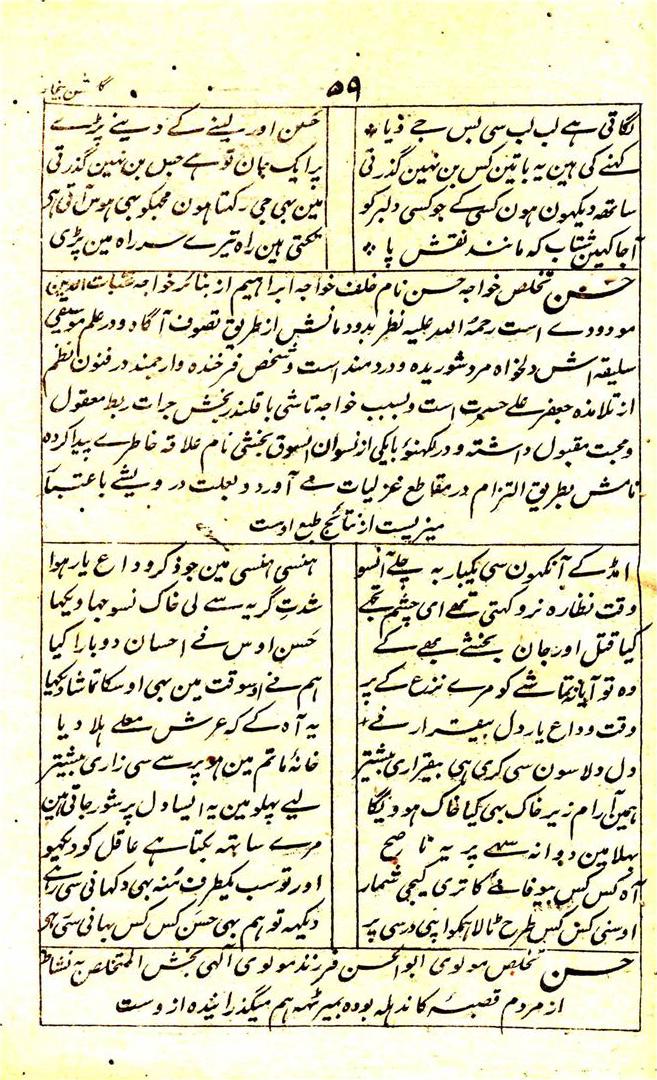 ۵۹ گلشن بیخار
لگاتی ہے لب لب سی بس جے ذیا٭ حسن اور لینے کے دینے پڑے
کہنے کی ہین یہ باتین کس بن نہین گذرتی پر ایک جان تو ہے حسن بن نہین گذرتی
ساتھہ دیکھون ہون کسی کے جو کسی دلبر کو مین بھی جی رکھتا ہون مجھکو بھی ہوس آتی ہی
آجا کہین شتاب کہ مانند نقش پا ٭ تکتی ہین راہ تیرے سر راہ مین پڑی
حسن تخلص خواجہ حسن نام خلف خواجہ ابراہیم از بنائر خواجہ
مودودے است رحمۃ اللہ علیہ نظر بدودمانش از طریق تصوف آگاہ و در علم موسیقی
سلیقہ اش دلخواہ مرد شوریدہ و دردمند است و شخص فرخندہ و ارجمند در فنون نظم
از تلامذہ جعفر علے حسرت است و بسبب خواجہ تاشی با قلندر بخش جرات ربط معقول
و محبت مقبول داشتہ و در لکھنؤ با یکی از نسوان السوق بخشی نام علاقہ خاطرے پیدا کردہ
نامش بطریق التزام در مقاطع غزلیات مے آورد و لعلت درویشے با عتبار
میزیست از نتائج طبع اوست
امڈ کے آنکھون سی یکبار بہ چلے آنسو ہنسی ہنسی مین جو ذکر وداع یار ہوا
وقت نظارہ نرو کہتی تھے ای چشم تجھے شدت گریہ سے لی خاک نسوجھا دیکھا
کیا قتل اور جان بخشے بھے کے حسن اوس نے احسان دوبارا کیا
وہ تو آیا نہ تماشے کو مرے نزع کے پر ہم نے اوسوقت مین بھی اوسکا تماشا دیکھا
وقت وداع یار دل بیقرار نے ٭ یہ آہ کے کہ عرش معلے ہلا دیا
دل دلاسون سی کری ہی بیقراری بیشتر خانۂ ماتم مین ہو پرسے سی زاری بیشتر
ہمین آرام زیر خاک بھی کیا خاک ہو ویگا لیے پہلو مین یہ ایسا دل پر شور جاتی ہین
بھلا مین دوانہ سہے پر یہ ناصح مرے ساتھہ بکتا ہے عاقل کو دیکھیو
آہ کس کس بیوفائے کا تری کیجی شمار اور تو سب یکطرف منہ بھی دکھانی سی رہے
اوسنی کس کس طرح ٹالا ہمکو اپنی در سی پر دیکھہ تو ہم بھی حسن کس کس بہانی سی رہے
حسن تخلص مولوی ابوالحسن فرزند مولوی الہی بخش المتخلص بہ نشاط
از مردم قصبۂ کاندہلہ بودہ بمیرٹھہ ہم میگذرانیدہ از وست